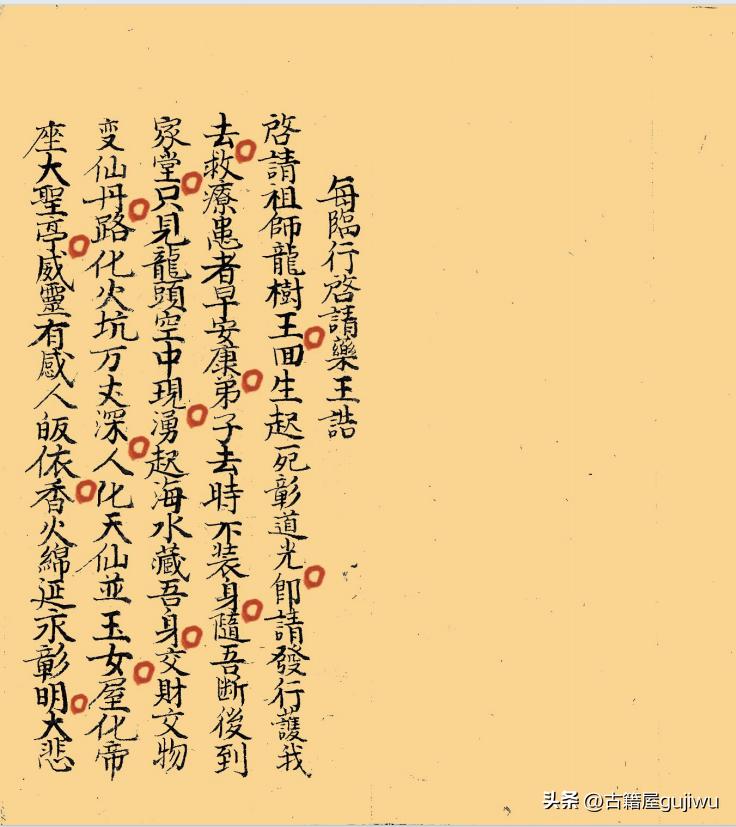 每臨行啓請藥王誥
啓請祖師龍樹王回生起死彰道光即請發行護我
去救療患者早安康弟子去時不装身隨吾断後到
家堂只見龍頭空中現湧起海水藏吾身交財交物
变仙丹路化火坑万丈深人化天仙並玉女屋化帝
座大聖亭威靈有感人皈依香火綿延永彰明大悲
头条 @古籍屋gujiwu